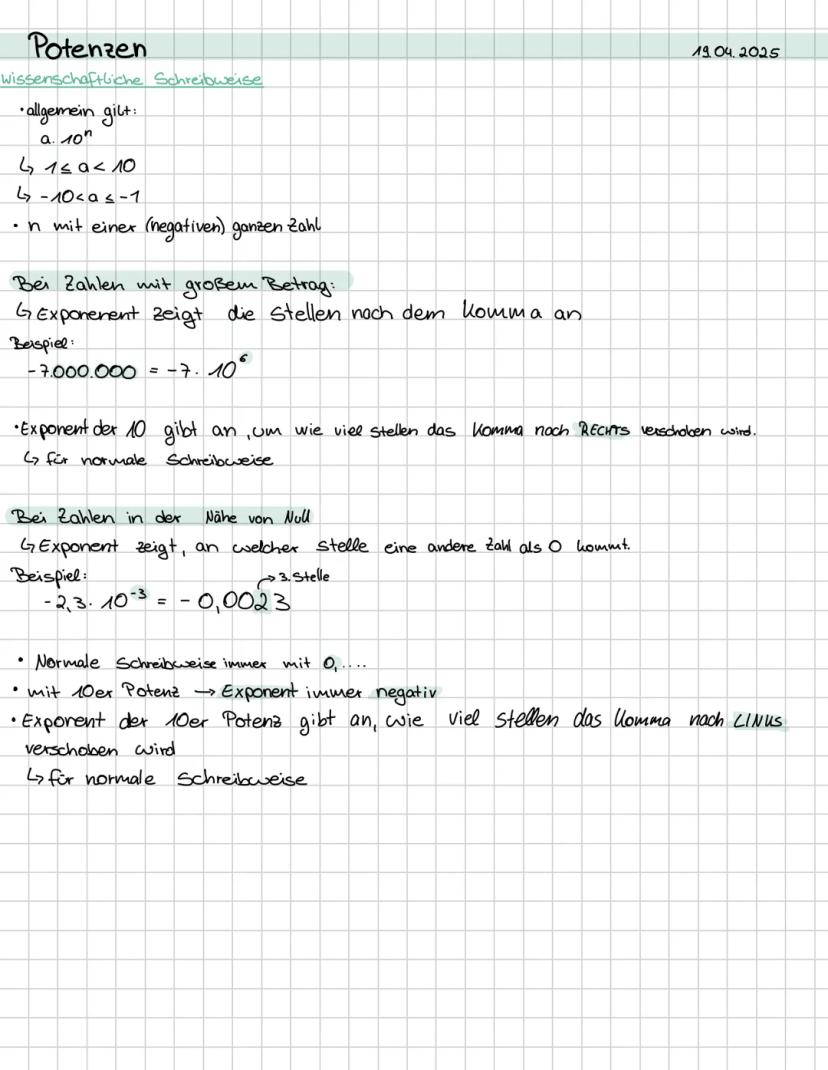 Potenzen
19.04.2025
Wissenschaftliche Schreibweise
• allgemein gilt:
a. 10ⁿ
↳ 1 ≤ a < 10
↳ -10 < a ≤ -1
• n mit einer (negativen) ganzen Zahl
Bei Zahlen mit großem Betrag:
↳ Exponenent zeigt die Stellen nach dem Komma an
Beispiel:
- 7.000.000 = -7. 10⁶
• Exponent der 10 gibt an, um wie viel stellen das Komma nach RECHTS verschoben wird.
↳ für normale Schreibweise
Bei Zahlen in der Nähe von Null
↳ Exponent zeigt, an welcher Stelle eine andere Zahl als 0 kommt.
Beispiel:
→ 3. Stelle
- 2,3. 10⁻³ = - 0,0023
• Normale Schreibweise immer mit 0,....
• mit 10er Potenz → Exponent immer negativ
• Exponent der 10er Potenz gibt an, wie viel stellen das Komma nach LINKS
verschoben wird
↳ für normale Schreibweise